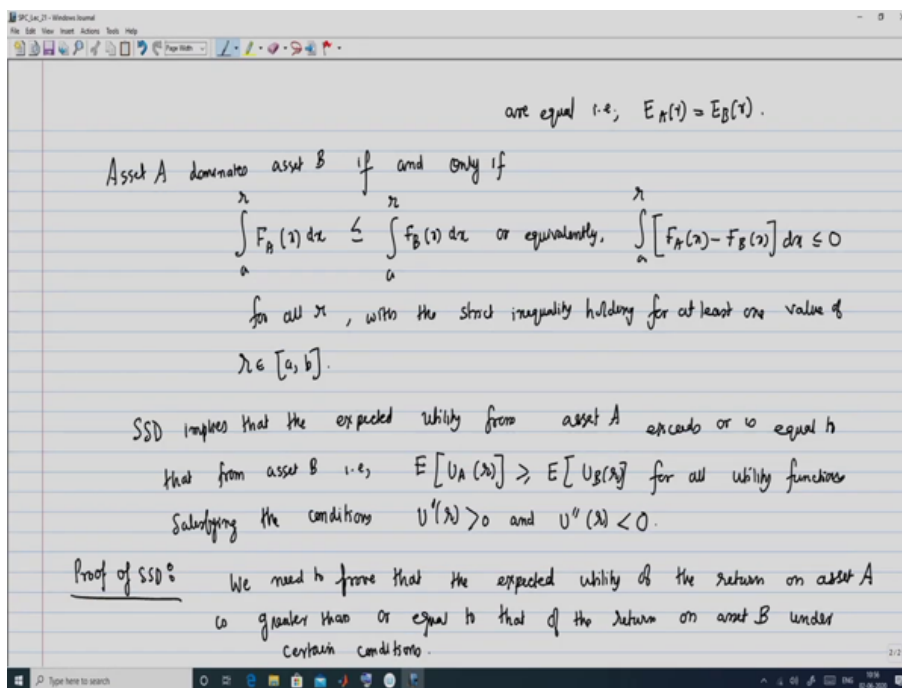 SPC_Lec_21 - Windows Journal
File Edit View Insert Actions Tools Help
Page Width
are equal i.e, E_A(r) = E_B(r).
Asset A dominates asset B if and only if
∫_a^r F_A(x) dx ≤ ∫_a^r F_B(x) dx or equivalently, ∫_a^r [F_A(x) - F_B(x)] dx ≤ 0
for all r, with the strict inequality holding for at least one value of
r ∈ [a, b].
SSD implies that the expected utility from asset A exceeds or is equal to
that from asset B i.e, E[U_A(r)] ≥ E[U_B(r)] for all utility functions
satisfying the conditions U'(r) >0 and U''(r) < 0.
Proof of SSD: We need to prove that the expected utility of the return on asset A
is greater than or equal to that of the return on asset B under
certain conditions.
2/2
Type here to search
ENG
10:56
02-06-2020